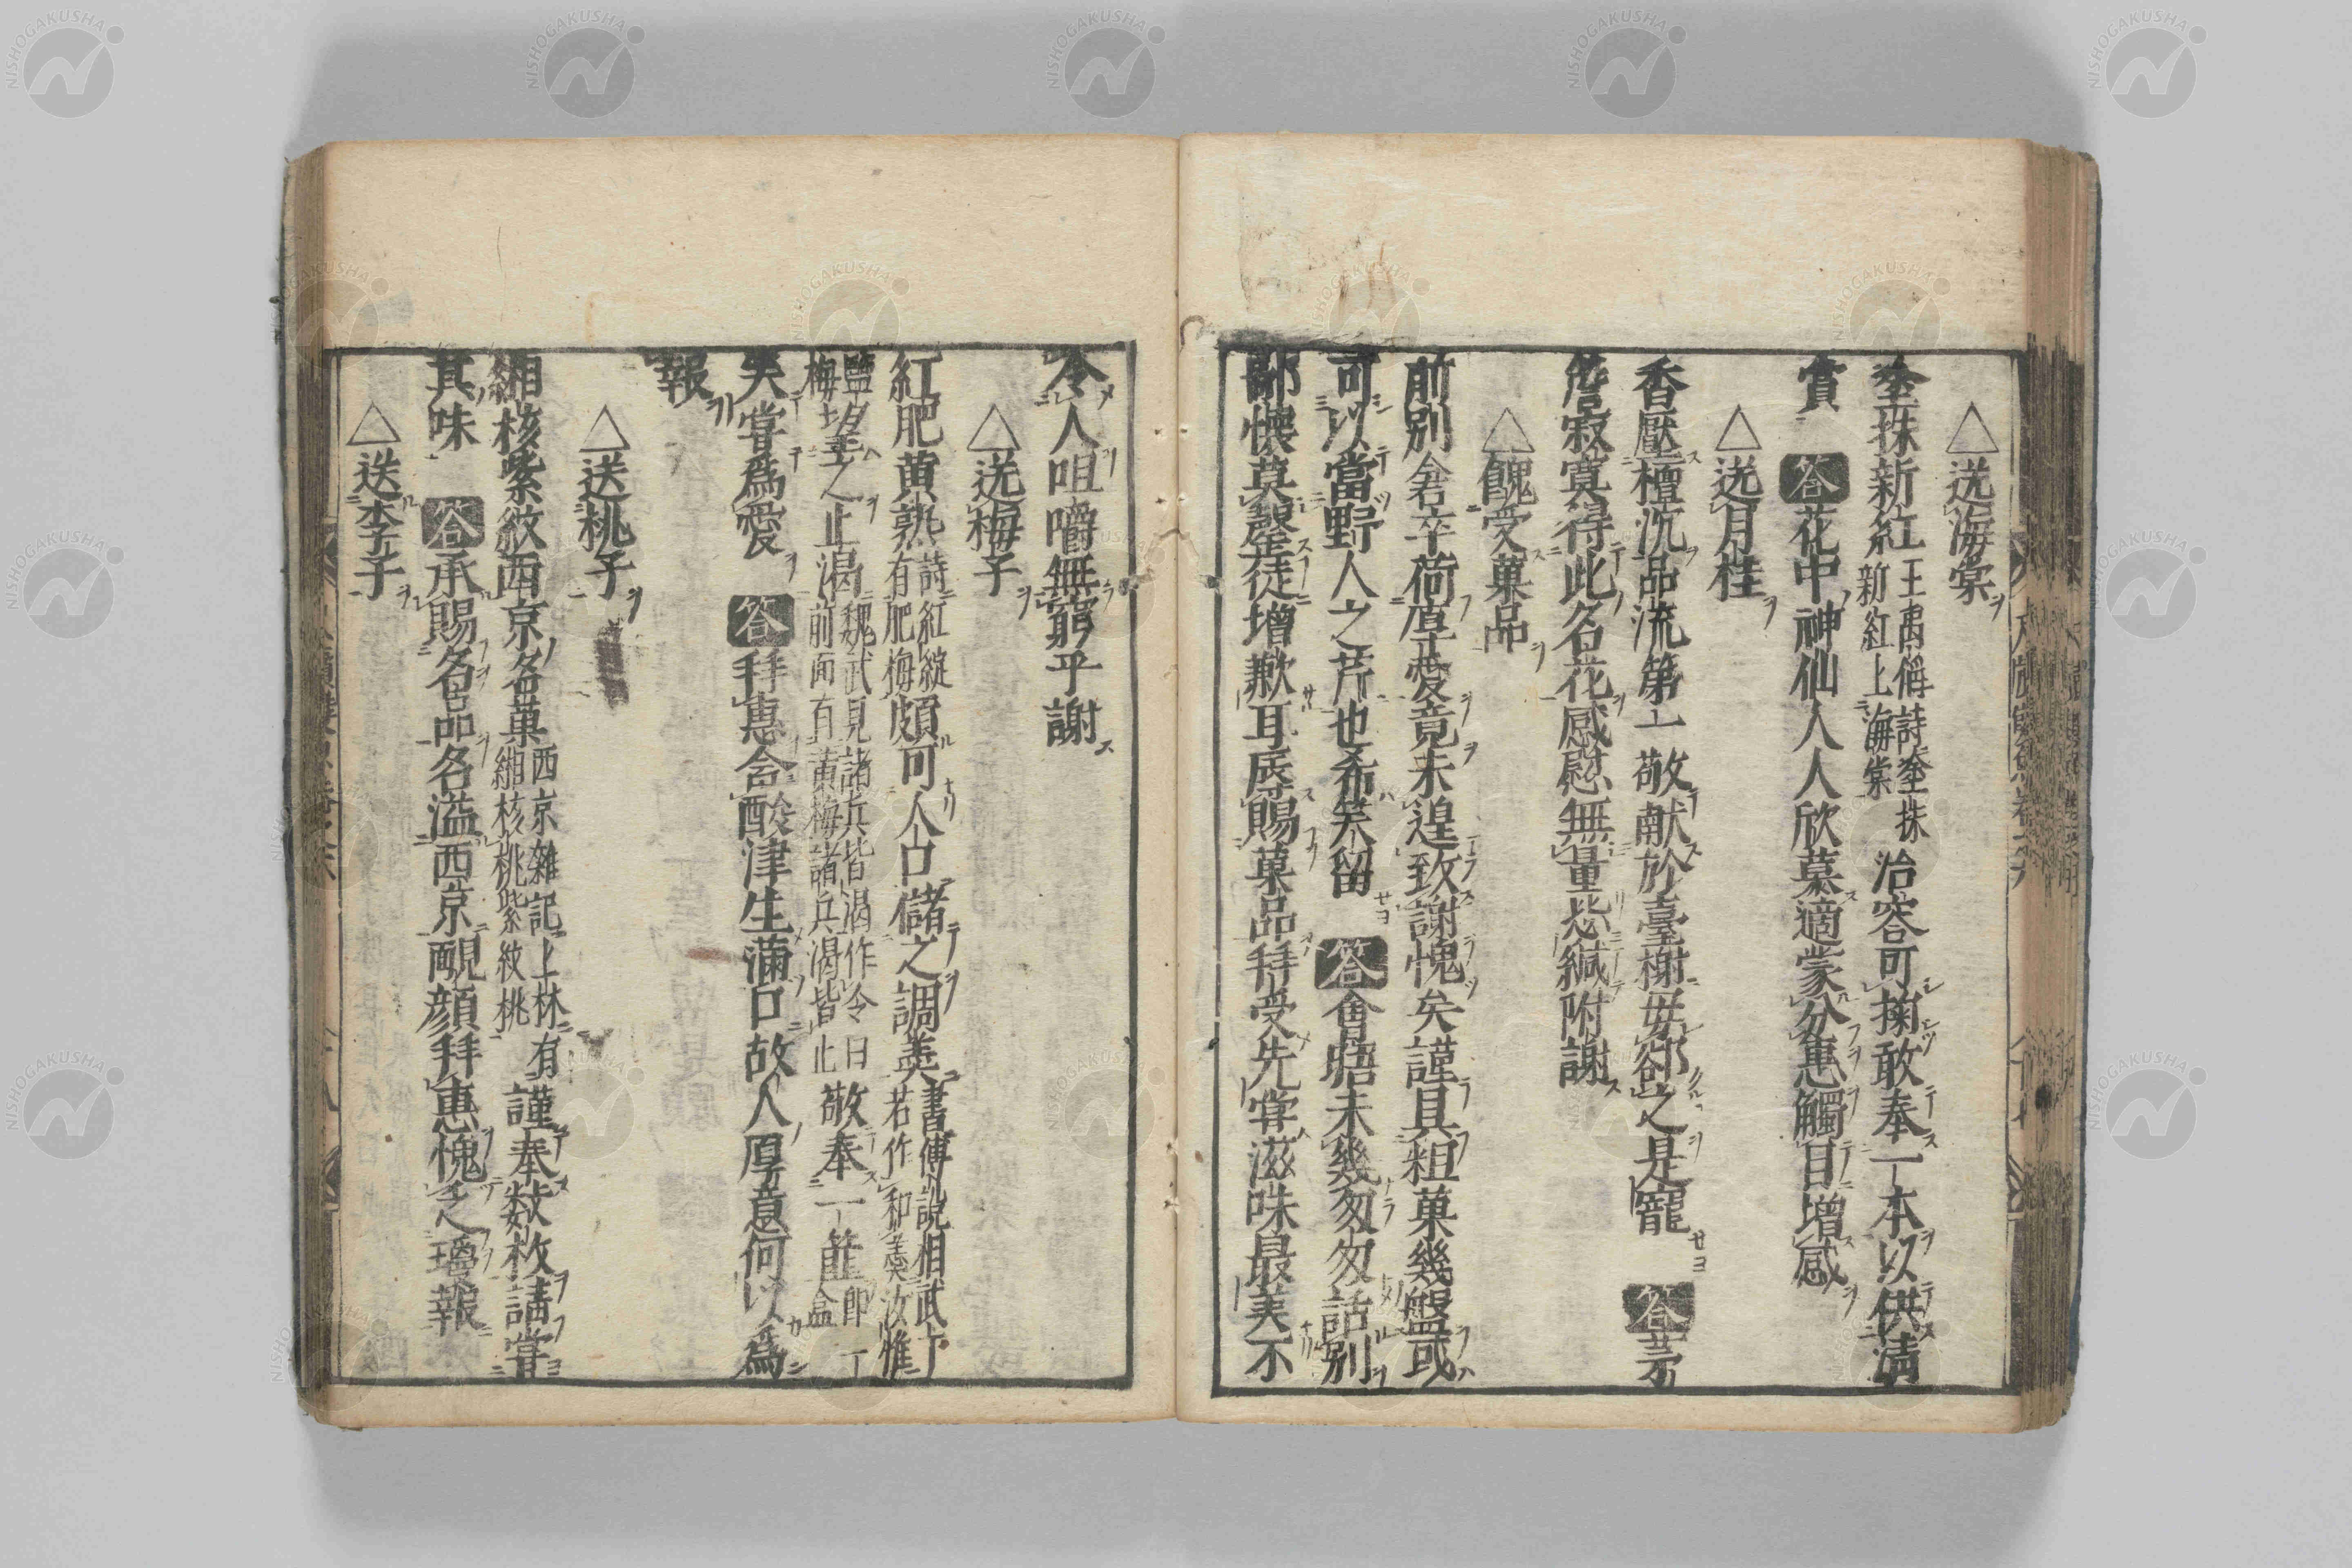 △送海棠
㙜抹新紅 王禹偁詩㙜抹新紅上海棠 冶容可掬敢奉一本以供清
賞 答 花中神仙人人欣慕適蒙分惠觸目增感
△送月桂
香壓檀沉品流第一敬献於臺榭毋郤之是寵 答 茅
詹寂寞得此名花感慰無量㳟緘附謝
△餽受菓品
前別倉卒荷厚愛竟未遑致謝愧矣謹具粗菓幾盤或
可以當野人之芹也希笑留 答 會晤未幾匆匆話別
鄙懷莫罄徒增歉耳辱賜菓品拜受先嘗滋味最美不
令人咀嚼無窮乎謝
△送梅子
紅肥黄熟 詩紅綻有肥梅 頗可人口儲之調羮 書傅說相武丁若作和羹汝惟
鹽梅 望之止渴 魏武見諸兵皆渴作令曰前面有黄梅諸兵渴皆止 敬奉一𥫱 即一盒
笑嘗爲愛 答 拜惠含酸津生滿口故人厚意何以爲
報
△送桃子
緗核紫紋西京名菓 西京雜記上林有緗核桃紫紋桃 謹奉数枚請嘗
其味 答 承賜名品名溢西京靦顔拜惠愧乏瓊報
△送李子